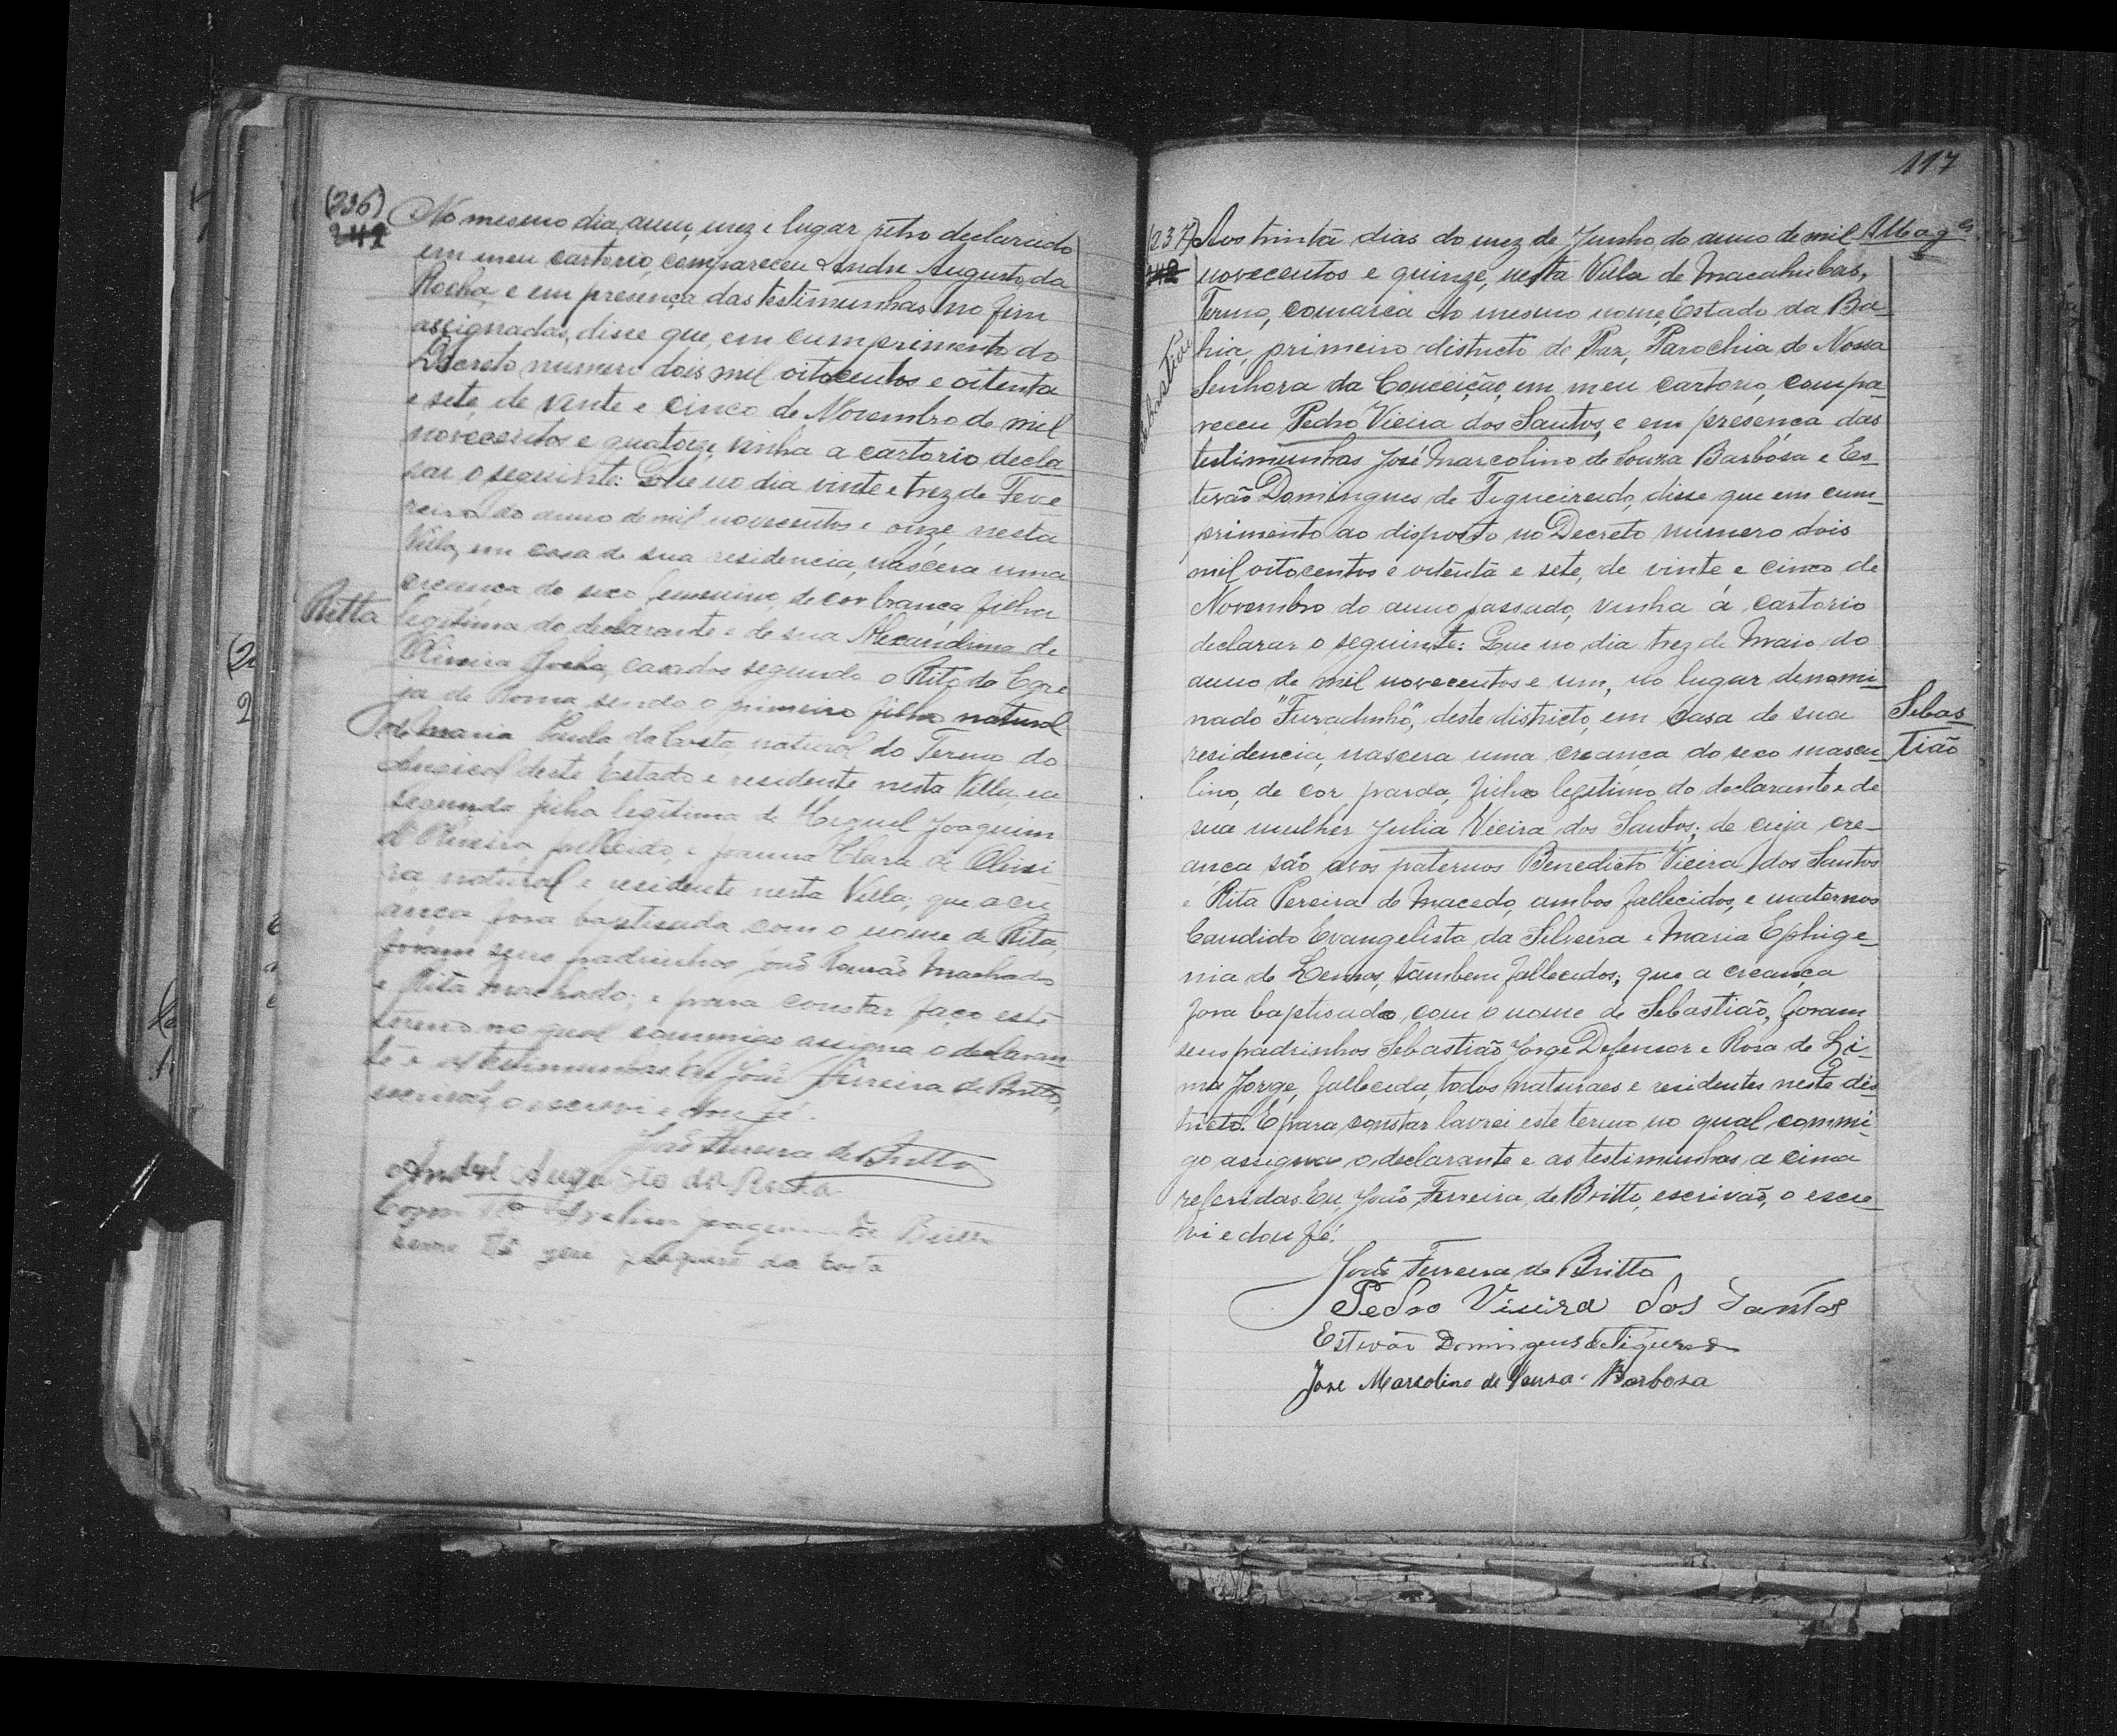 (236)
241
No mesmo dia, anno, mez e lugar retro declarado
em meu cartorio, compareceu Andre Augusto da
Rocha, e em presença das testimunhas no fim
assignadas, disse que, em cumprimento do
Decreto numero dois mil oitocentos e oitenta
e sete, de vinte e cinco de Novembro de mil
novecentos e quatorze, vinha a cartorio decla
rar o seguinte: Que no dia vinte e trez de Feve
reiro do anno de mil novecentos e onze, nesta
Villa, em casa de sua residencia, nascera uma
creança do sexo feminino, de cor branca, filha
Ritta
legitima do declarante e de sua Alexandrina de
Oliveira Rocha, casados segundo o Rito da Egre
ja de Roma, sendo o primeiro filho natural
de Maria Paula da Costa, natural do Termo do
deste Estado e residente nesta Villa, e a
segunda filha legitima de Miguel Joaquim
de Oliveira, fallecido, e Joanna Clara de Olivei
ra, natural e residente nesta Villa; que a cre
ança fora baptisada com o nome de Rita,
foram seus padrinhos João Machado
e Rita Machado; e para constar faço este
termo no qual commigo assigna o declaran
te e as testimunhas. Eu João Ferreira de Britto,
escrivão, o escrevi e dou fé.
João Ferreira de Britto
André Augusto da Rocha
Como Ta Avelino Britto
como Ta da Costa
117
(237)
242
Aos trinta dias do mez de Junho do anno de mil
novecentos e quinze, nesta Villa de Macahubas,
Termo, comarca do mesmo nome, Estado da Ba-
hia, primeiro districto de Paz, Parochia de Nossa
Senhora da Conceição, em meu cartorio, compa-
receu Pedro Vieira dos Santos, e em presença das
testimunhas José Marcolino de Souza Barbosa e Es-
tevão Domingues de Figueiredo, disse que em cum-
primento ao disposto no Decreto numero dois
mil oitocentos e oitenta e sete, de vinte e cinco de
Novembro do anno passado, vinha á cartorio
declarar o seguinte: Que no dia trez de Maio do
anno de mil novecentos e um, no lugar denomi-
nado "Furadinho", deste districto, em casa de sua
Sebas
tião
residencia, nascera uma creança do sexo mascu-
lino, de cor parda, filho legitimo do declarante e de
sua mulher Julia Vieira dos Santos; de cuja cre-
ança são avos paternos Benedicto Vieira dos Santos
e Rita Pereira de Macedo, ambos fallecidos, e maternos
Candido Evangelista da Silveira e Maria Ephige-
nia de Lemos, tambem fallecidos; que a creança
fora baptisado com o nome de Sebastião, foram
seus padrinhos Sebastião Jorge Defensor e Rosa de Li-
ma Jorge, fallecida, todos naturaes e residentes neste dis
tricto. E para constar lavrei este termo no qual commi-
go assigna o declarante e as testimunhas a cima
referidas. Eu, João Ferreira de Britto, escrivão, o escre-
vi e dou fé.
João Ferreira de Britto
Pedro Vieira dos Santos
Estevão Domingues de Figueredo
Jose Marcolino de Souza Barbosa